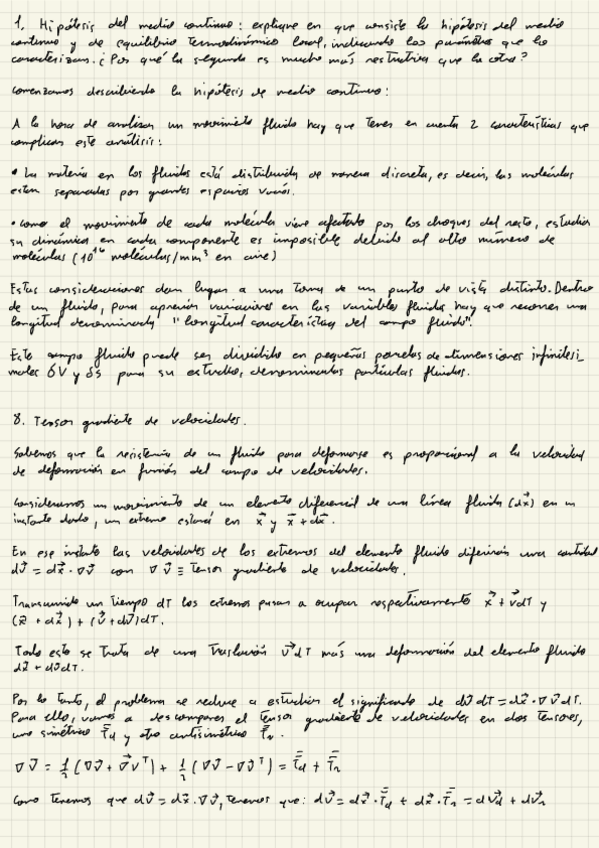 1. Hipótesis del medio continuo: explique en que consiste la hipótesis del medio
continuo y de equilibrio termodinámico local, indicando los parámetros que los
caracterizan. ¿Por qué la segunda es mucho más restrictiva que la otra?
Comenzamos describiendo la hipótesis de medio continuo:
A la hora de analizar un movimiento fluido hay que tener en cuenta 2 características que
complican este análisis:
• La materia en los fluidos está distribuida de manera discreta, es decir, las moléculas
estan separadas por grandes espacios vacíos.
• Como el movimiento de cada molécula viene afectado por los choques del resto, estudiar
su dinámica en cada componente es imposible debido al alto número de
moléculas (10¹⁶ moléculas/mm³ en aire)
Estas consideraciones dan lugar a una toma de un punto de vista distinto. Dentro
de un fluido, para apreciar variaciones en las variables fluidas hay que recorrer una
longitud denominada "longitud característica del campo fluido".
Este campo fluido puede ser dividido en pequeñas parcelas de dimensiones infinitesi_
males δV y δs para su estudio, denominadas partículas fluidas.
8. Tensor gradiente de velocidades.
Sabemos que la resistencia de un fluido para deformarse es proporcional a la velocidad
de deformación en función del campo de velocidades.
Consideramos un movimiento de un elemento diferencial de una línea fluida (dx⃗) en un
instante dado, un extremo estará en x⃗ y x⃗ + dx⃗.
En ese instante las velocidades de los extremos del elemento fluido diferirán una cantidad
dv⃗ = dx⃗ · ∇v⃗ con ∇v⃗ ≡ Tensor gradiente de velocidades.
Transcurrido un tiempo dT los extremos pasan a ocupar respectivamente x⃗ + v⃗dT y
(x⃗ + dx⃗) + (v⃗ + dv⃗)dT.
Todo esto se trata de una traslación v⃗dT más una deformación del elemento fluido
dx⃗ + dv⃗dT.
Por lo tanto, el problema se reduce a estudiar el significado de dv⃗dT = dx⃗ · ∇v⃗dT.
Para ello, vamos a descomponer el tensor gradiente de velocidades en dos tensores,
uno simétrico T̿d y otro antisimétrico T̿r.
∇v⃗ = 1/2 (∇v⃗ + ∇v⃗ᵀ) + 1/2 (∇v⃗ - ∇v⃗ᵀ) = T̿d + T̿r
Como tenemos que dv⃗ = dx⃗ · ∇v⃗, tenemos que: dv⃗ = dx⃗ · T̿d + dx⃗ · T̿r = dv⃗d + dv⃗r